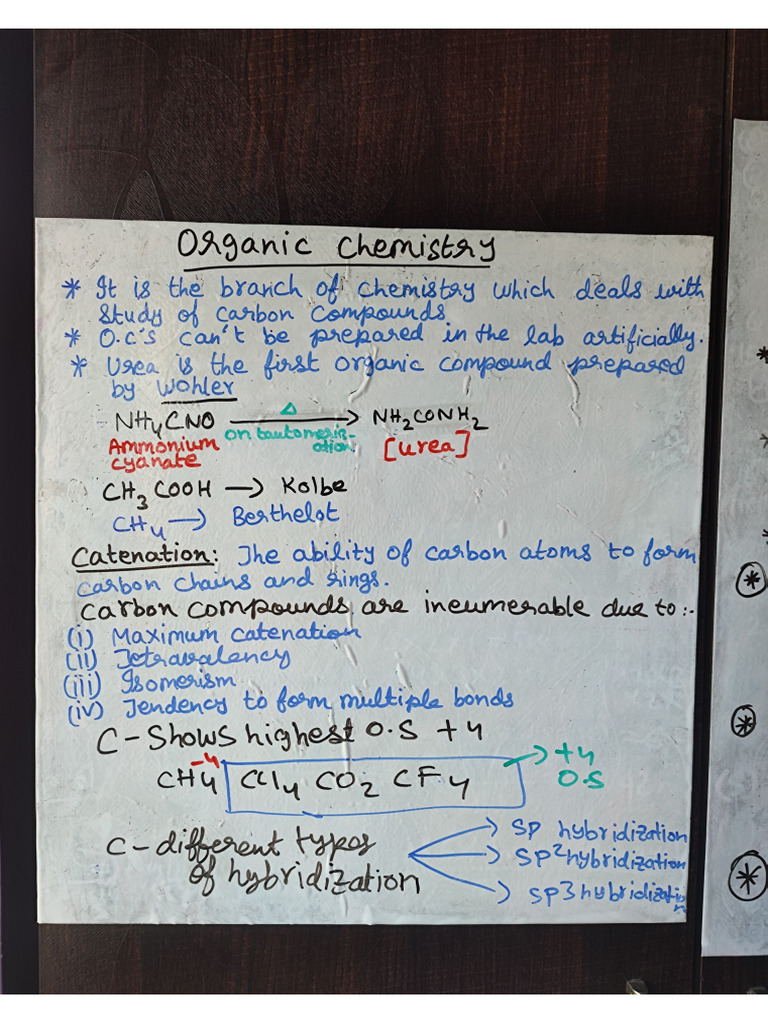 Organic Chemistry
* It is the branch of chemistry which deals with
study of carbon compounds
* O.C's can't be prepared in the lab artificially.
* Urea is the first organic compound prepared
by Wohler
NH4CNO Δ → NH2CONH2
on tautomeriz-
ation
Ammonium
cyanate
[urea]
CH3COOH → Kolbe
CH4 → Berthelot
Catenation: The ability of carbon atoms to form
carbon chains and rings.
Carbon compounds are ineumerable due to:-
(i) Maximum catenation
(ii) Tetravalency
(iii) Isomerism
(iv) Tendency to form multiple bonds
C-Shows highest O.S +4
-4
CH4 CCl4 CO2 CF4 → +4
O.S
C-different types
of hybridization
→ SP hybridization
→ SP2 hybridization
→ SP3 hybridization